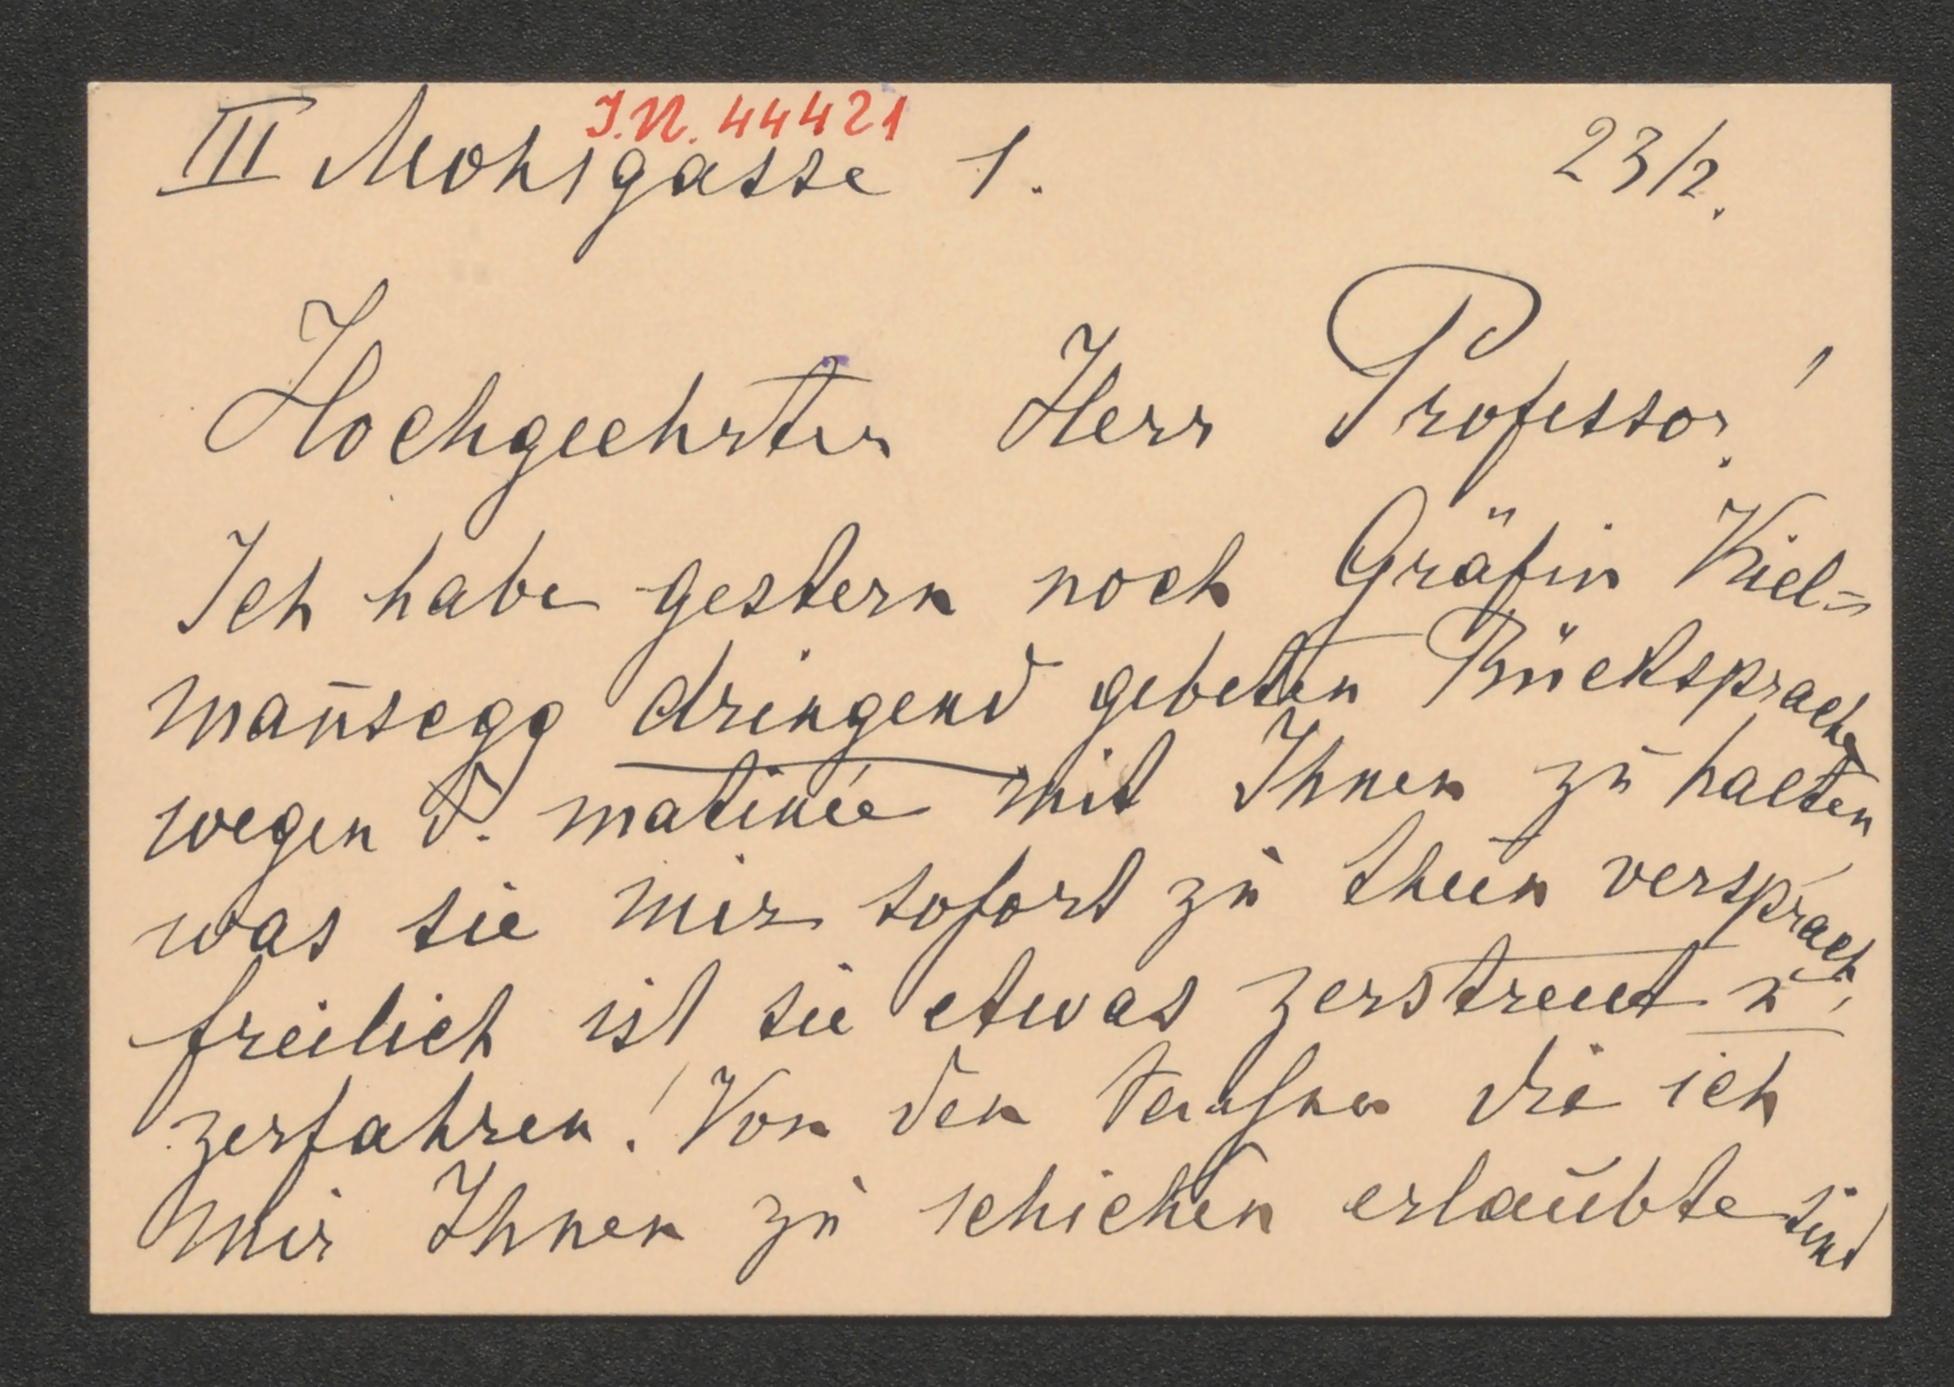 J.N. 44421
III Mohsgasse 1. 23/2.
Hochgeehrter Herr Professor!
Ich habe gestern noch Gräfin Kiel=
man̄segg dringend gebeten Rücksprache
wegen d. matinée mit Ihnen zu halten
was sie mir sofort zu thun versprach,
freilich ist sie etwas zerstreut u.
zerfahren! Von den die ich
mir Ihnen zu schicken erlaubte sind